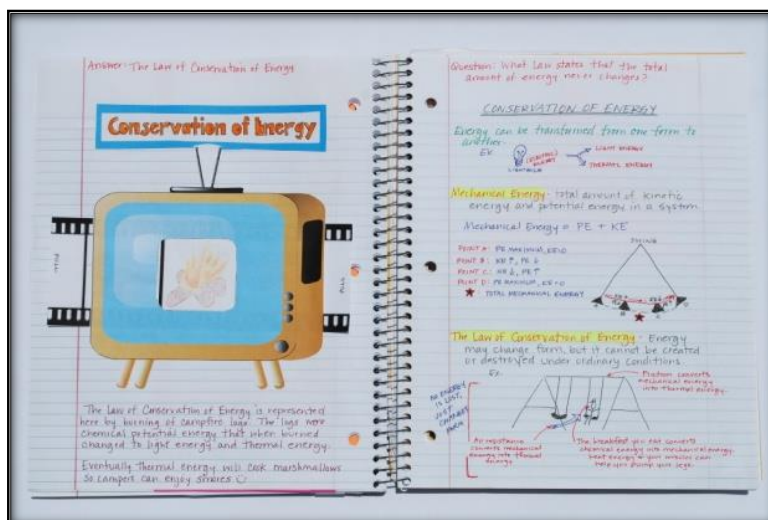 Answer: The Law of Conservation of Energy
Conservation of Energy
PULL
The Law of Conservation of Energy is represented
here by burning of campfire logs. The logs have
chemical potential energy that when burned
changed to light energy and thermal energy.
Eventually thermal energy will cook marshmallows
so campers can enjoy smores
Question: What Law states that the total
amount of energy never changes?
CONSERVATION OF ENERGY
Energy can be transformed from one form to
another.
EX.
LIGHTBULB
ENERGY
LIGHT ENERGY
THERMAL ENERGY
Mechanical Energy - total amount of kinetic
energy and potential energy in a system.
Mechanical Energy = PE + KE
SWING
POINT A: PE MAXIMUM, KE=0
POINT B: KE↑, PE↓
POINT C: KE↓, PE↑
POINT D: PE MAXIMUM, KE=0
★ TOTAL MECHANICAL ENERGY
The Law of Conservation of Energy - Energy
may change form, but it cannot be created
or destroyed under ordinary conditions.
Ex.
Friction converts
mechanical energy
into thermal energy.
NO ENERGY
IS LOST,
JUST
CHANGES
FORM
Air resistance
converts mechanical
energy into thermal
energy
The breakfast you eat converts
chemical energy into mechanical energy.
Heat energy in your muscles can
help you pump your legs.